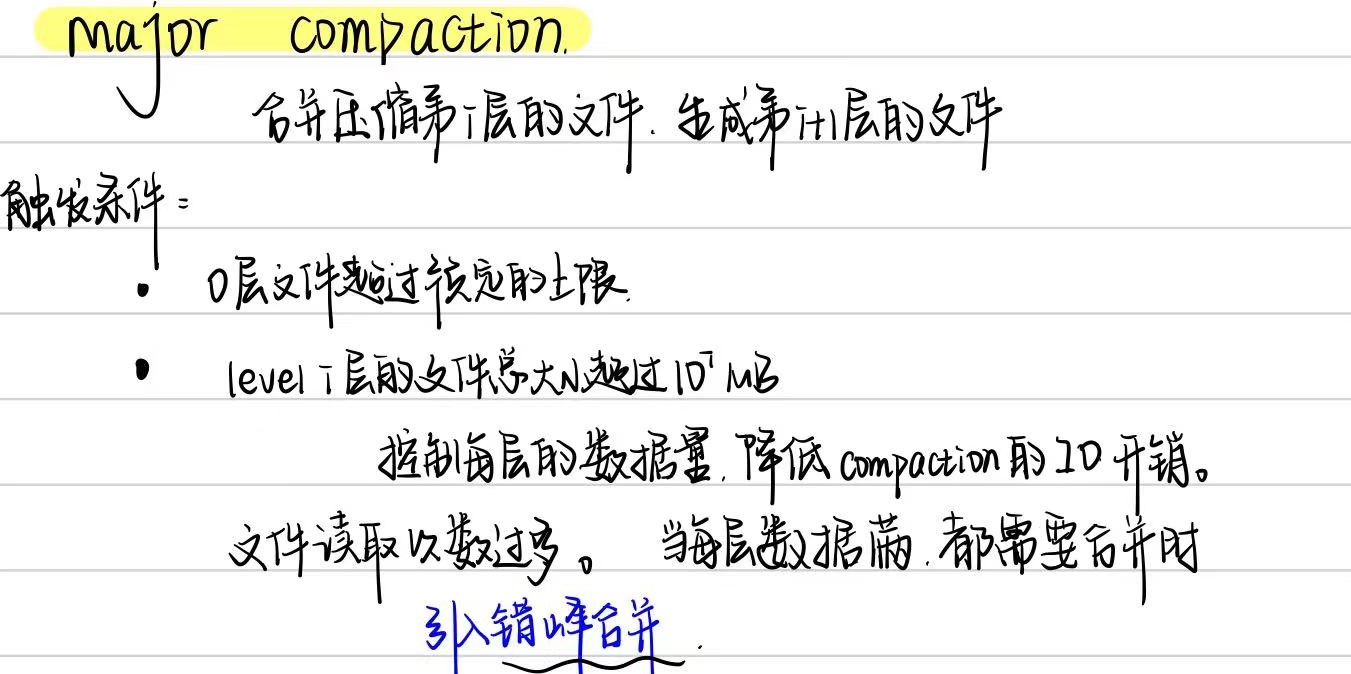 major compaction.
合并压缩第i层的文件. 生成第i+1层的文件
触发条件:
• 0层文件超过预定的上限.
• level i 层的文件总大小超过10^i MB
控制每层的数据量, 降低compaction的IO开销。
文件读取次数过多。 当每层数据满, 都需要合并时
引入错峰合并.